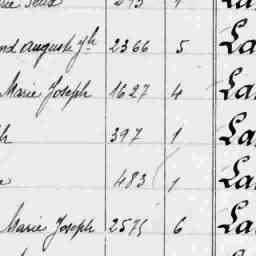 nd auguste jh 2366 5 La
Marie Joseph 1627 4 La
h 397 1 La
e 483 1 La
Marie Joseph 2575 6 La